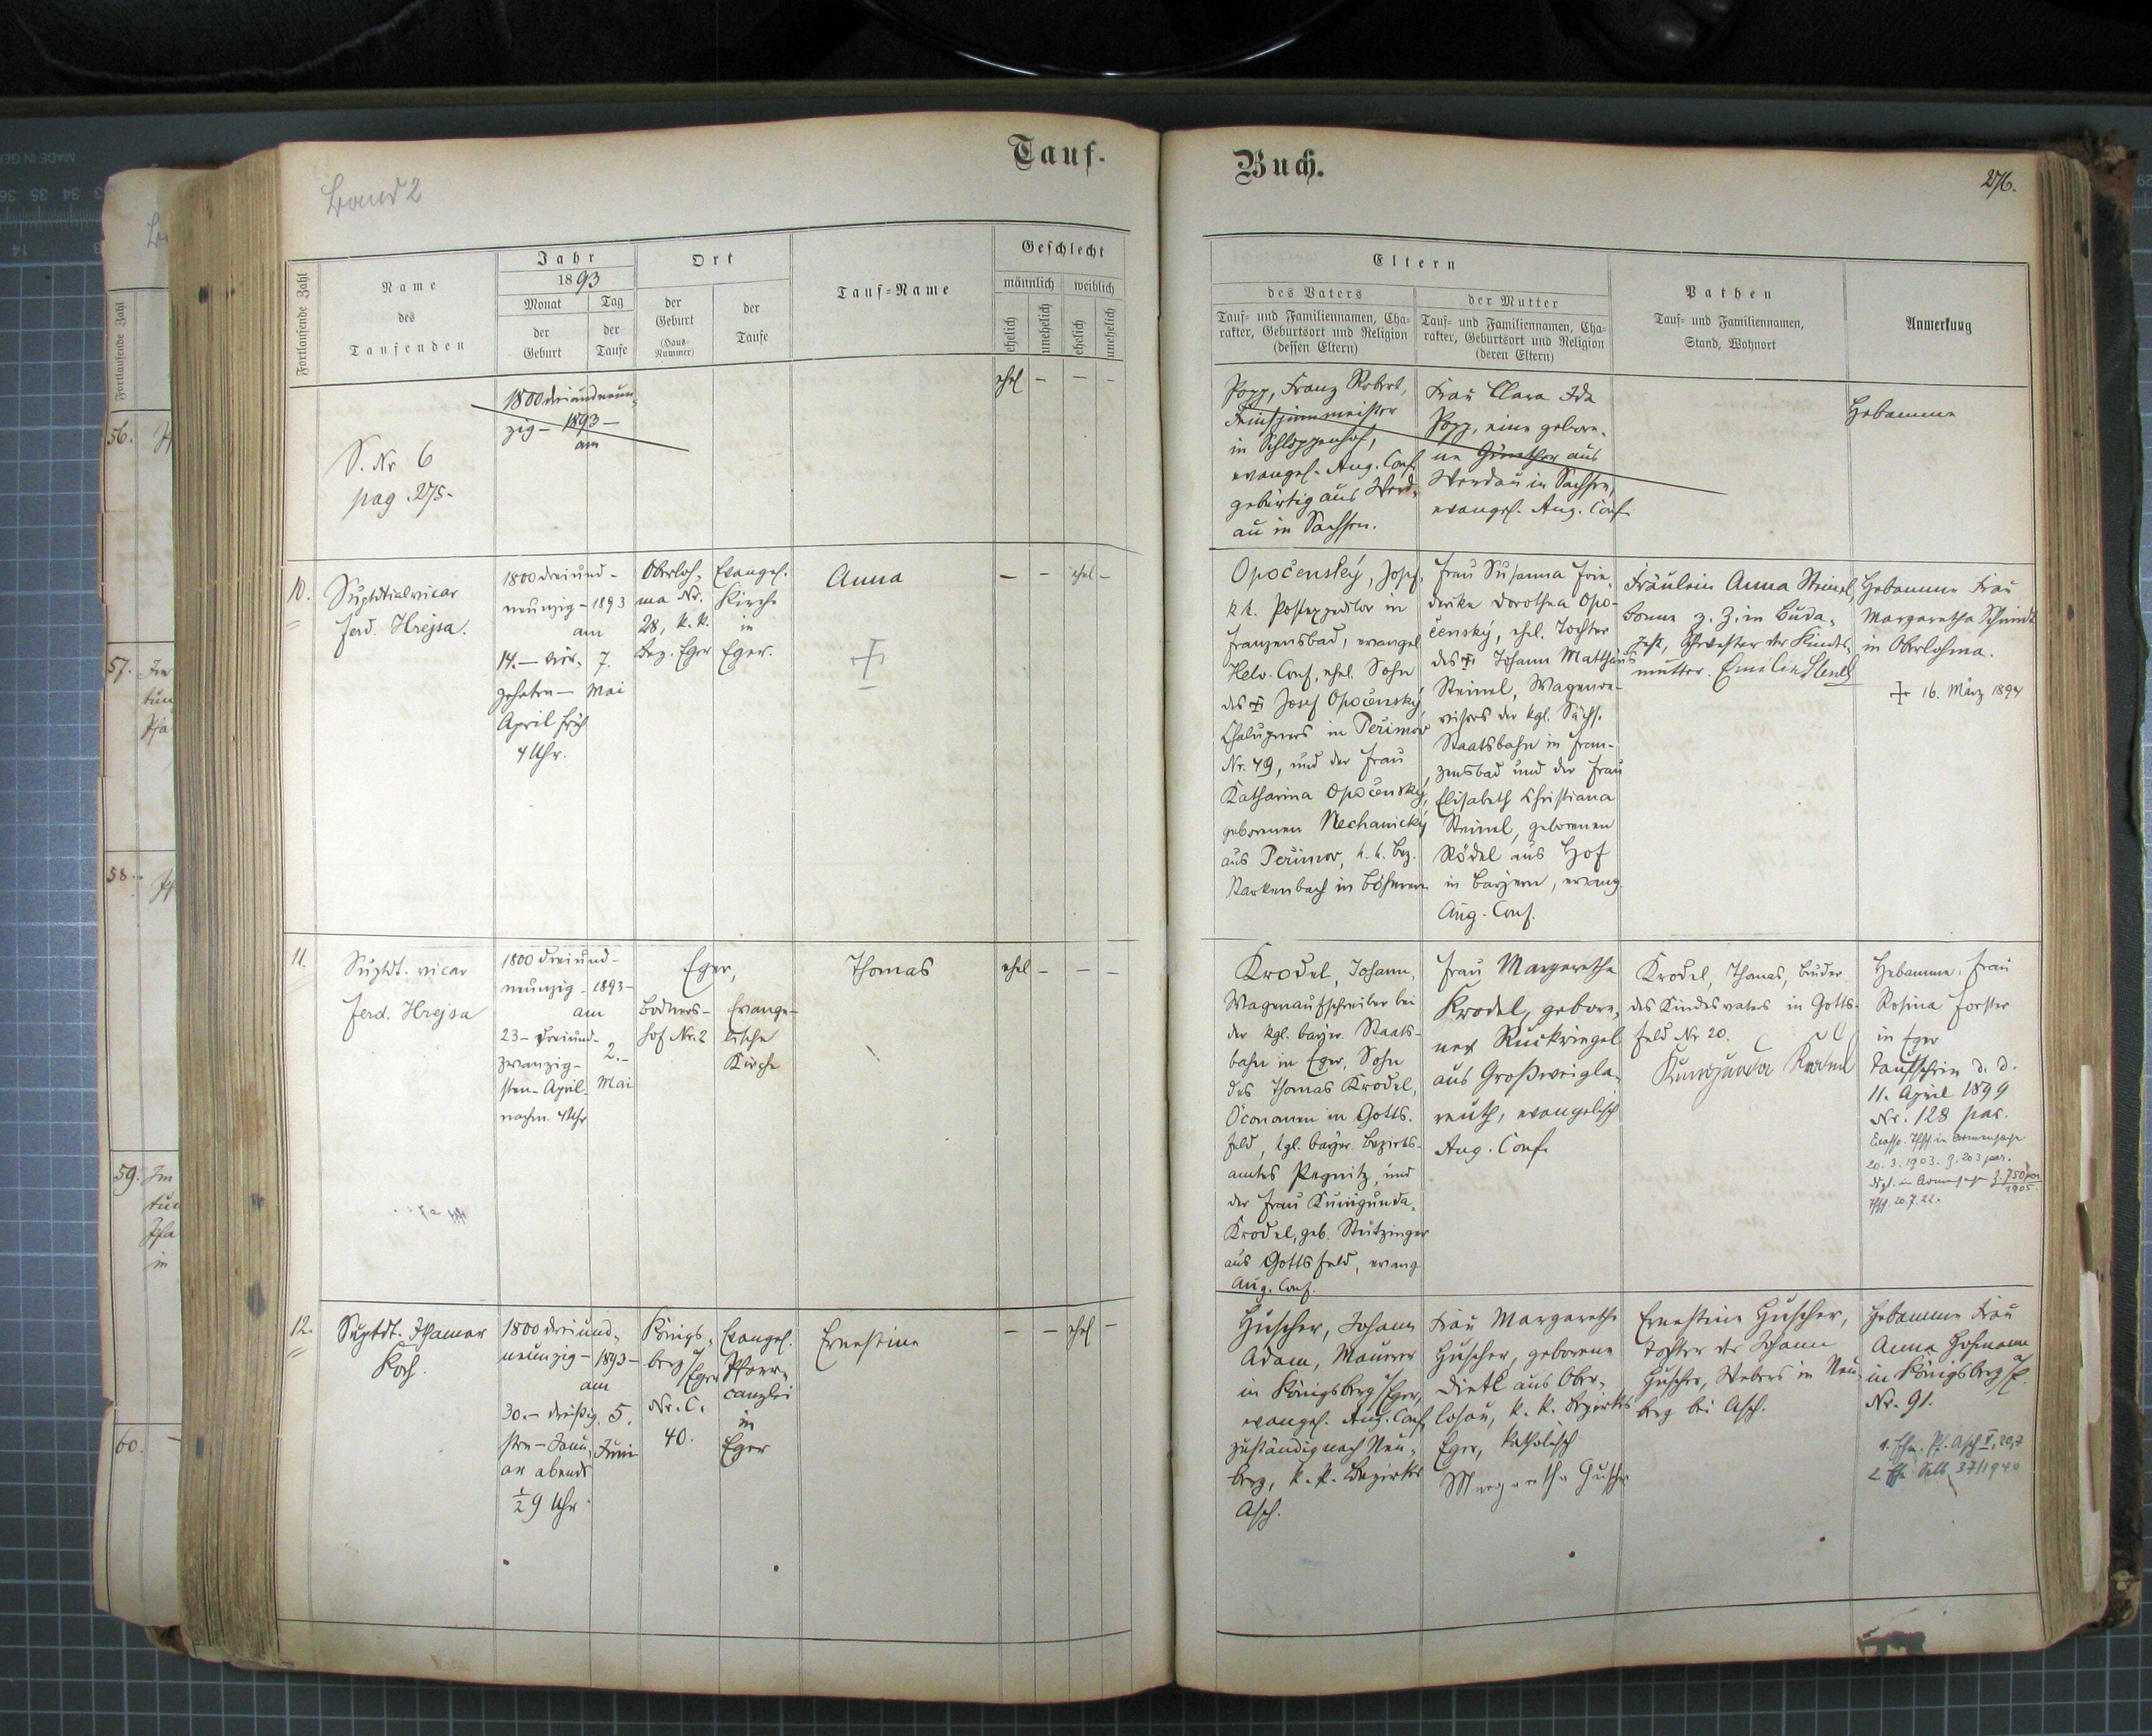 Tauf-
Buch.
276.
Band 2
Fortlaufende Zahl
Name
des
Taufenden
Jahr
1893
Monat
der
Geburt
Tag
der
Taufe
Ort
der
Geburt
(Haus-
Nummer)
der
Taufe
Tauf-Name
Geschlecht
männlich
weiblich
ehelich
unehelich
ehelich
unehelich
Eltern
des Vaters
Tauf- und Familiennamen, Cha-
rakter, Geburtsort und Religion
(dessen Eltern)
der Mutter
Tauf- und Familiennamen, Cha-
rakter, Geburtsort und Religion
(deren Eltern)
Pathen
Tauf- und Familiennamen,
Stand, Wohnort
Anmerkung
S. Nr 6
pag. 275.
1800 dreiundneun-
zig – 1893 –
am
ehel – – –
Popp, Franz Robert,
in Schloppenhof,
evangel. Aug. Conf.
gebürtig aus Werd-
au in Sachsen.
Frau Clara Ida
Popp, eine gebore-
ne Günther aus
Werdau in Sachsen,
evangel. Aug. Conf.
Hebamme
10.
Suptdtialvicar
Ferd. Hrejsa.
1800 dreiund-
neunzig – 1893
am
14. – vier-
zehnten –
April früh
4 Uhr.
7.
Mai
Oberloh-
ma Nr.
28, k. k.
Bez. Eger
Evangel.
Kirche
in
Eger.
Anna
– – ehel –
Opočenský, Josef,
k k. Postexpeditor in
Franzensbad, evangel
Helv. Conf, ehel. Sohn
des Josef Opočenský,
Chalupners in Peřimov
Nr. 49, und der Frau
Katharina Opočenský,
geborenen Nechanický
aus Peřimov, k. k. Bez.
Starkenbach in Böhmen
Frau Susanna Frie-
derike Dorothea Opo-
čenský, ehel. Tochter
des Johann Matthäus
Steinel, Wagenre-
visors der kgl. Sächs.
Staatsbahn in Fran-
zensbad und der Frau
Elisabeth Christiana
Steinel, geborenen
Rödel aus Hof
in Bayern, evang.
Aug. Conf.
Fräulein Anna Steinel,
Bonne z. Z. in Buda-
pest, Schwester der Kindes-
mutter. Emilie Steinel
Hebamme Frau
Margaretha Schmidt
in Oberlohma.
16. März 1894
11.
Suptdt. vicar
Ferd. Hrejsa
1800 dreiund-
neunzig – 1893 –
am
23 – dreiund-
zwanzig-
sten – April
nachm. 4 Uhr
2. –
Mai
Eger,
Bodners-
hof Nr. 2
Evange-
lische
Kirche
Thomas
ehel – – –
Krodel, Johann,
Wagenaufschreiber bei
der kgl. bayer. Staats-
bahn in Eger, Sohn
des Thomas Krodel,
Öconomen in Gotts-
feld, kgl. bayer. Bezirks-
amtes Pegnitz, und
der Frau Kunigunda
Krodel, geb. Stützinger
aus Gottsfeld, evang
Aug. Conf.
Frau Margaretha
Krodel, gebore-
ne Ruckriegel
aus Großweigla-
reuth, evangelisch
Aug. Conf.
Krodel, Thomas, Bruder
des Kindesvaters in Gotts-
feld Nr 20.
Kunigunda Krodel
Hebamme. Frau
Rosina Forster
in Eger
Taufschein d. d.
11. April 1899
Nr. 128 par.
20. 3. 1903. Z. 203 par.
12.
Suptdt. Ithamar
Koch.
1800 dreiund-
neunzig – 1893 –
am
30. – dreißig-
sten – Janu-
ar abends
½ 9 Uhr
5.
Juni
Königs-
berg a/Eger
Nr. C.
40.
Evangel.
Pfarr-
canzlei
in
Eger
Ernestine
– – ehel –
Huscher, Johann
Adam, Maurer
in Königsberg a/Eger,
evangel. Aug. Conf.
zuständig nach Neu-
berg, k. k. Bezirks
Asch.
Frau Margaretha
Huscher, geborene
Dietl aus Ober-
losau, k. k. Bezirks
Eger, katholisch
Margaretha Huscher
Ernestine Huscher,
Tochter des Johann
Huscher, Webers in Neu-
berg bei Asch.
Hebamme Frau
Anna Hofmann
in Königsberg a/E.
Nr. 91.
56.
57.
58.
59.
60.